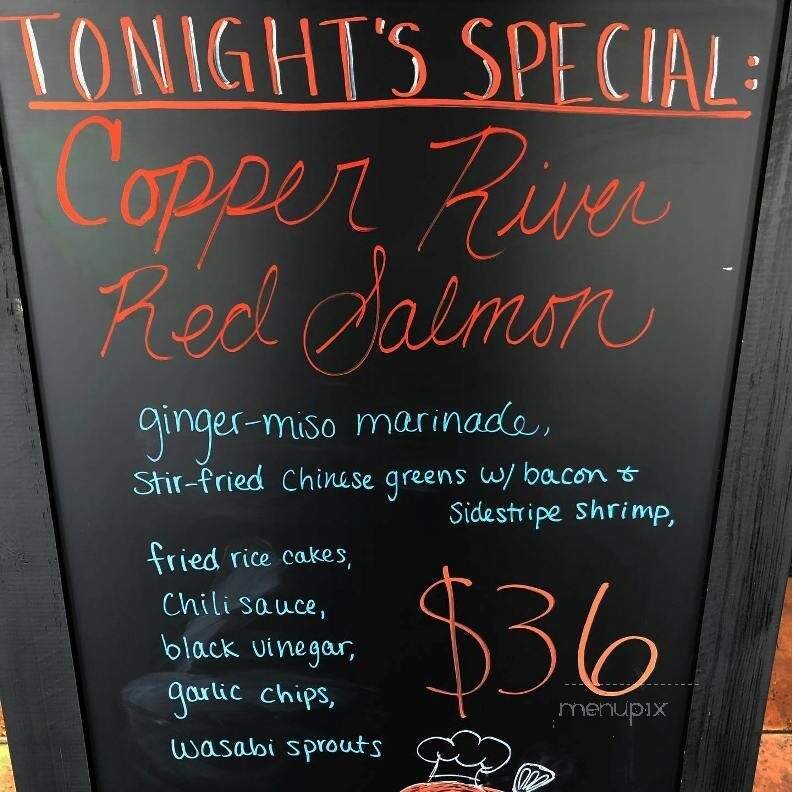 TONIGHT'S SPECIAL:
Copper River
Red Salmon
ginger-miso marinade,
Stir-fried Chinese greens w/ bacon &
Sidestripe shrimp,
fried rice cakes,
Chili sauce,
black vinegar,
garlic chips,
wasabi sprouts
$36
menupix